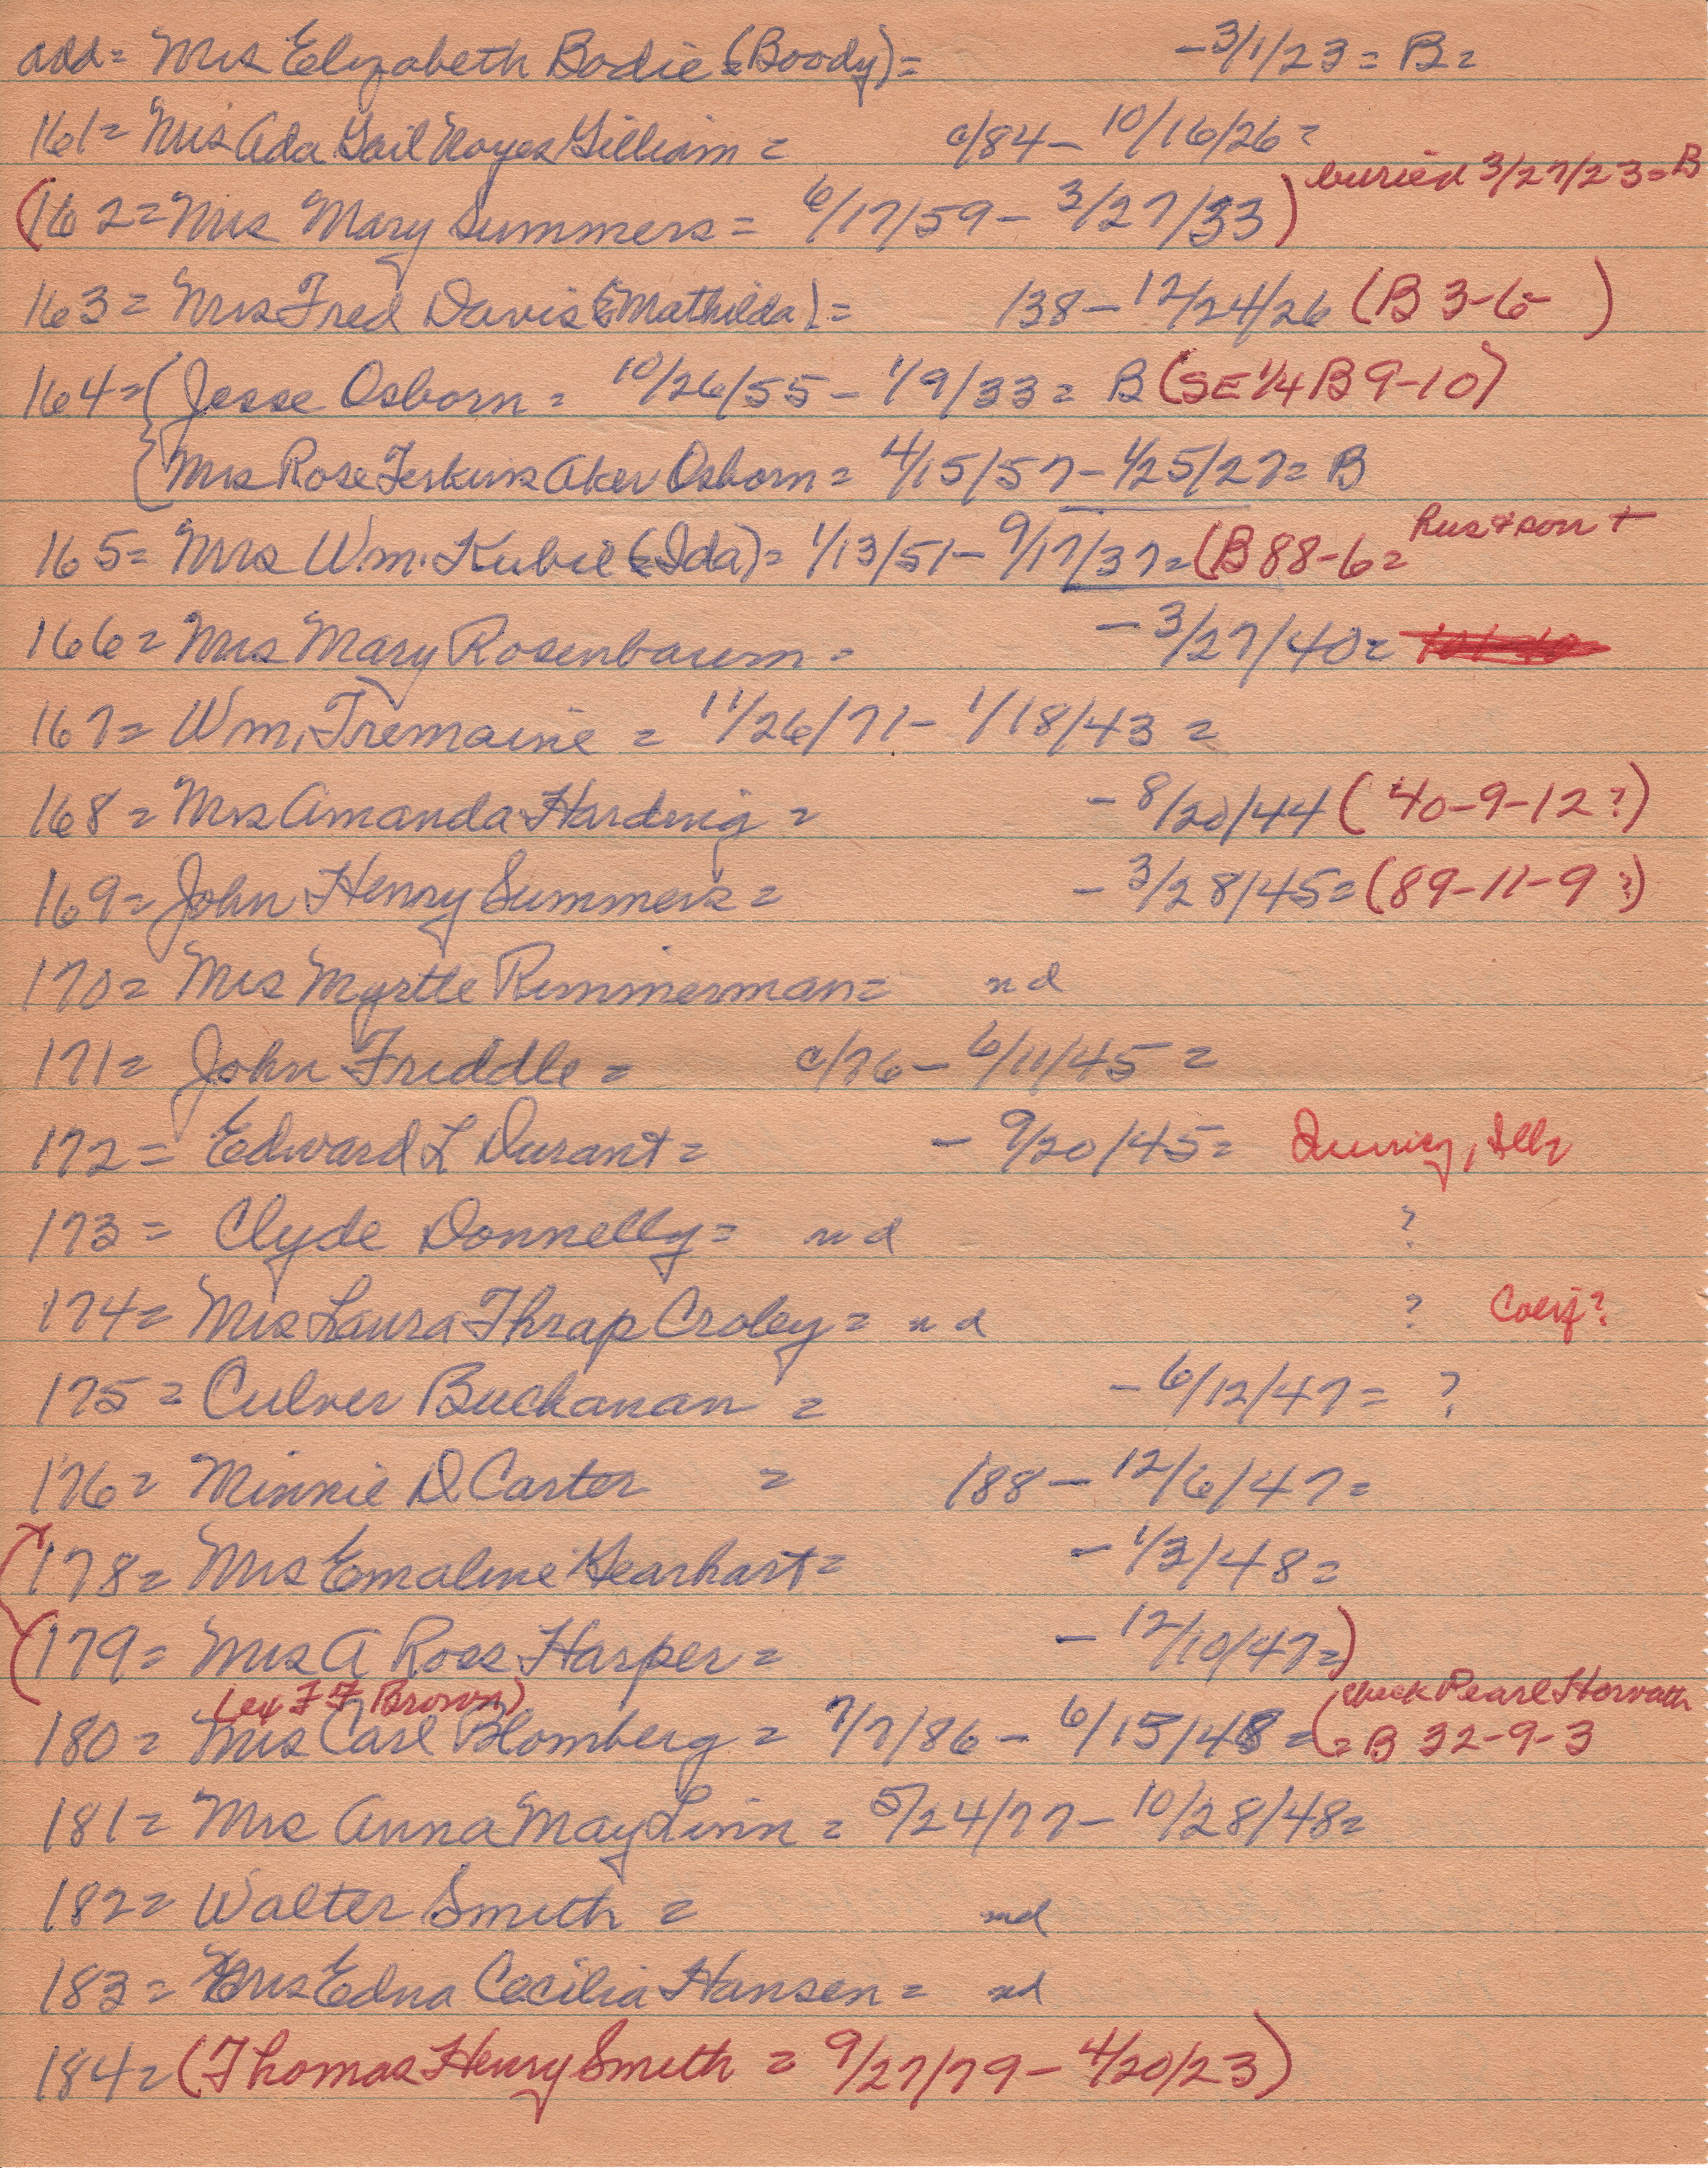 add= Mrs Elizabeth Bodie (Boody)= -3/1/23= B=
161= Mrs Ada Gail Noyes Gilliam= c/84- 10/16/26=
(162= Mrs Mary Summers= 6/17/59- 3/27/33) buried 3/27/23=B
163= Mrs Fred Davis (Mathilda)= 138- 12/24/26 (B 3-6- )
164= (Jesse Osborn= 10/26/55- 1/9/33= B (SE 1/4 B 9-10)
{Mrs Rose Ferkins Aker Osborn= 4/15/57- 1/25/27= B
165= Mrs Wm. Kubie (Ida)= 1/13/51- 9/17/37= (B 88-6= Hus & son +
166= Mrs Mary Rosenbaum= -3/27/40=
167= Wm. Tremaine= 11/26/71- 1/18/43=
168= Mrs Amanda Harding= -8/20/44 (40-9-12?)
169= John Henry Summers= -3/28/45= (89-11-9?)
170= Mrs Myrtle Rimmerman= nd
171= John Friddle= c/76- 6/11/45=
172= Edward L Durant= -9/20/45= Quincy, Ills
173= Clyde Donnelly= nd ?
174= Mrs Laura Thrap Croley= nd ?
175= Culver Buchanan= -6/12/47= ?
176= Minnie D. Carter= 188- 12/6/47=
178= Mrs Emaline Gearhart= -1/3/48=
(179= Mrs A Ross Harper= -12/10/47=)
(ex F F Brown) (check Pearl Horvath
180= Mrs Carl Blomberg= 7/7/86- 6/15/48= = B 32-9-3
181= Mrs Anna May Linn= 5/24/77- 10/28/48=
182= Walter Smith= nd
183= Mrs Edna Cecilia Hansen= nd
184= (Thomas Henry Smith= 9/27/79- 4/20/23)